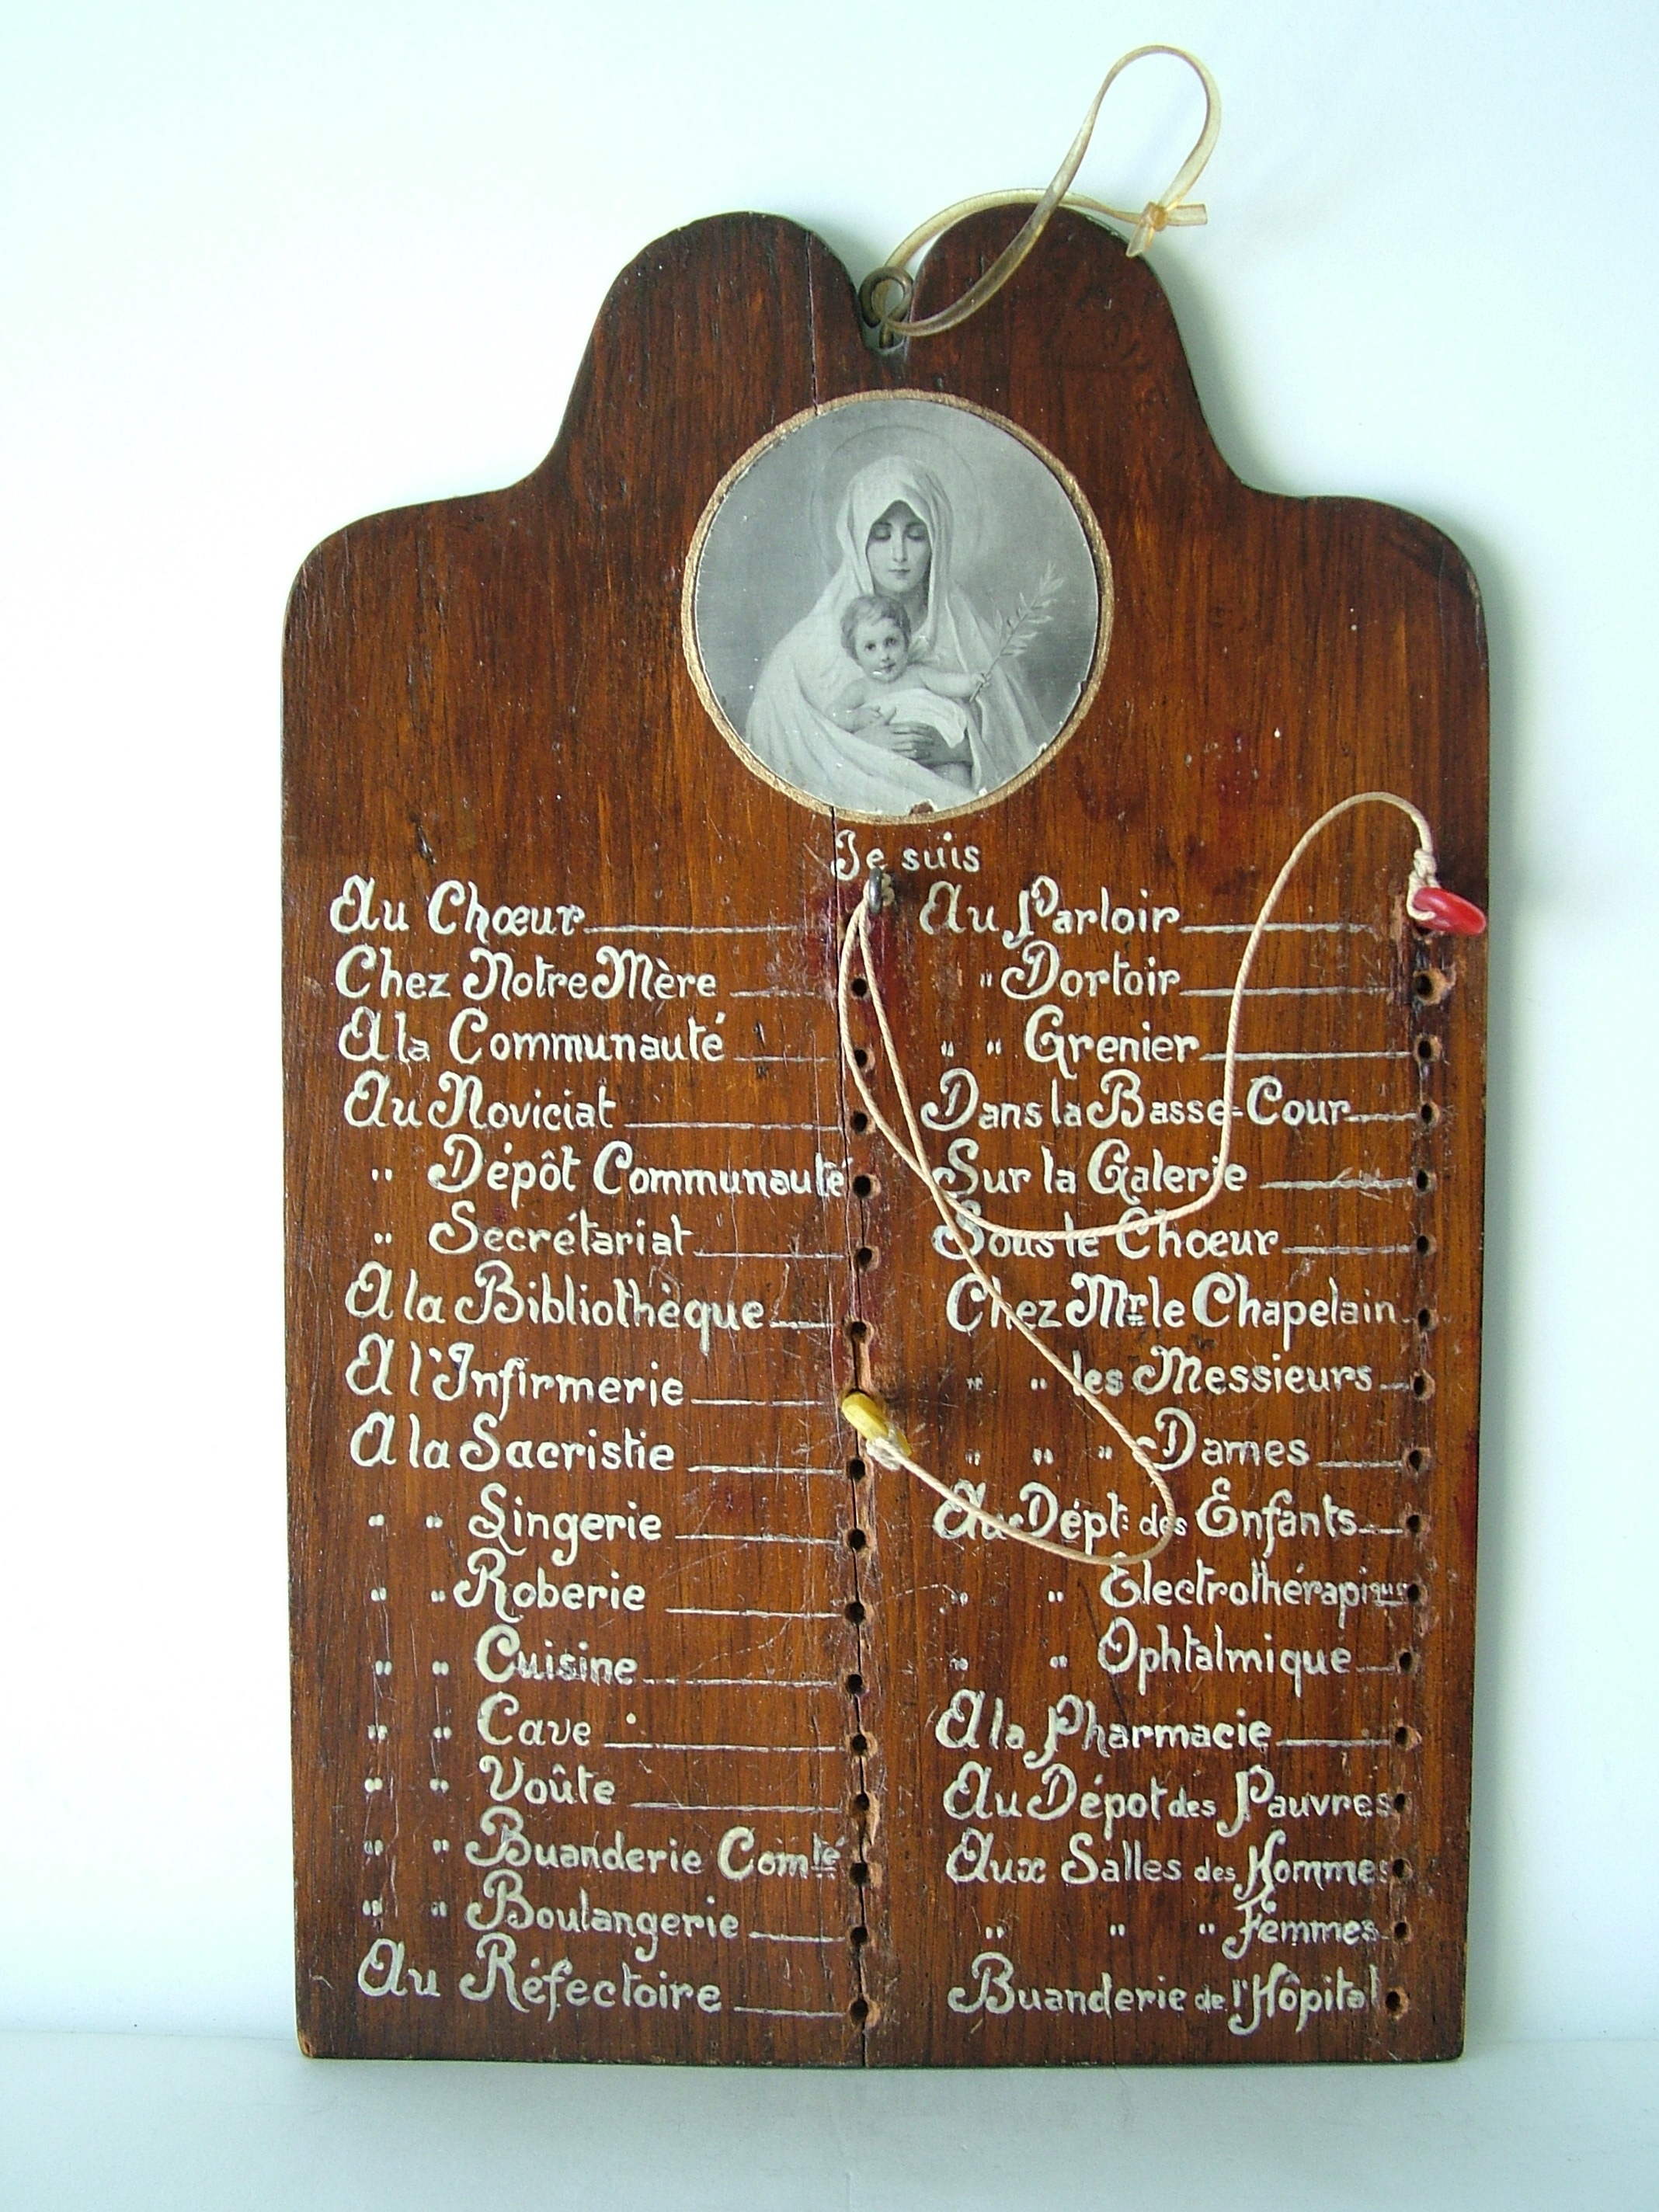 Je suis
Au Chœur
Chez Notre Mère
A la Communauté
Au Noviciat
" Dépôt Communauté
" Secrétariat
A la Bibliothèque
A l'Infirmerie
A la Sacristie
" " Lingerie
" " Roberie
" " Cuisine
" " Cave
" " Voûte
" " Buanderie Comté
" " Boulangerie
Au Réfectoire
Au Parloir
" Dortoir
" " Grenier
Dans la Basse-Cour
Sur la Galerie
Sous le Chœur
Chez Mr le Chapelain
" " les Messieurs
" " " Dames
Au Dépt: des Enfants
" " Electrothérapique
" " Ophtalmique
A la Pharmacie
Au Dépot des Pauvres
Aux Salles des Hommes
" " " Femmes
Buanderie de l'Hôpital